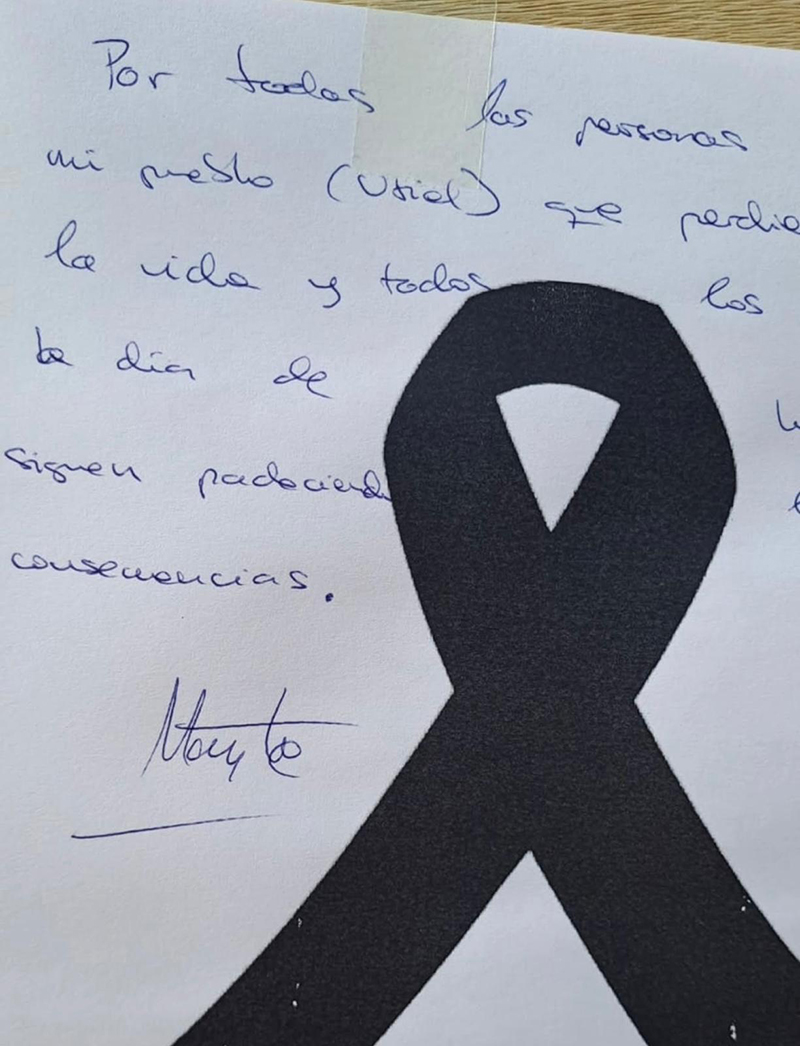 Por todas las personas
mi pueblo (Utiel) que perdie
la vida y todos los
la día de
siguen padeciendo
consecuencias.
Mayte